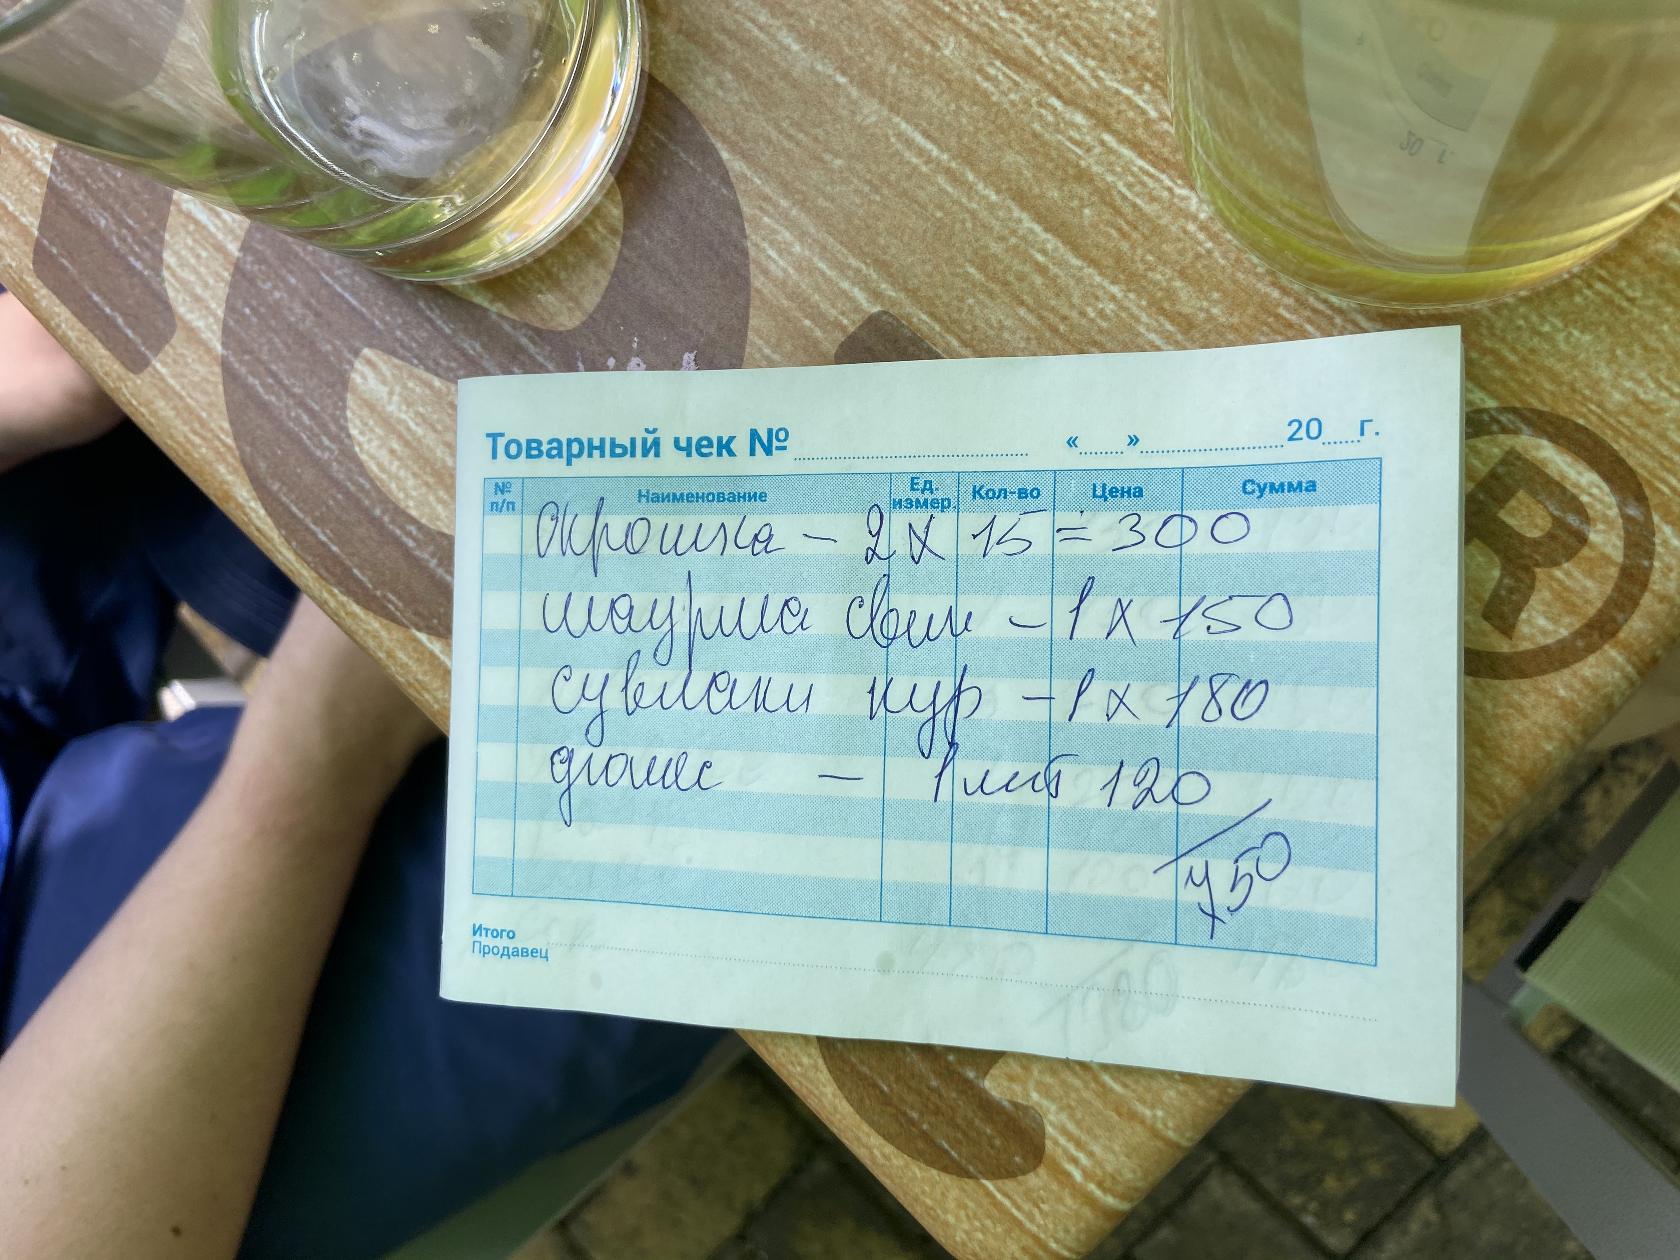 Товарный чек № «     » 20 г.
№ п/п Наименование Ед. измер. Кол-во Цена Сумма
Окрошка – 2 х 15 = 300
шаурма свин – 1 х 150
сувлаки кур – 1 х 180
дюшес – 1 лит 120
750
Итого
Продавец
®